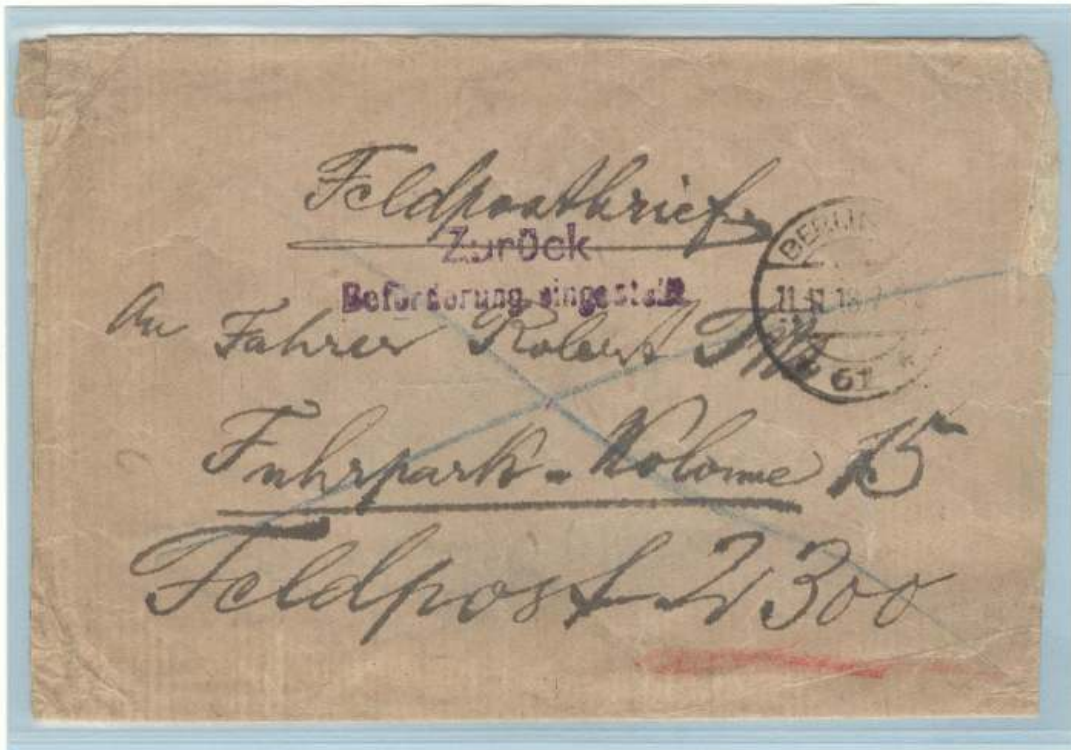 Feldpostbrief
Zurück
Beförderung eingestellt
BERLIN
11.11.18.7
61
An Fahrer Robert
Fuhrpark-Kolonne 15
Feldpost